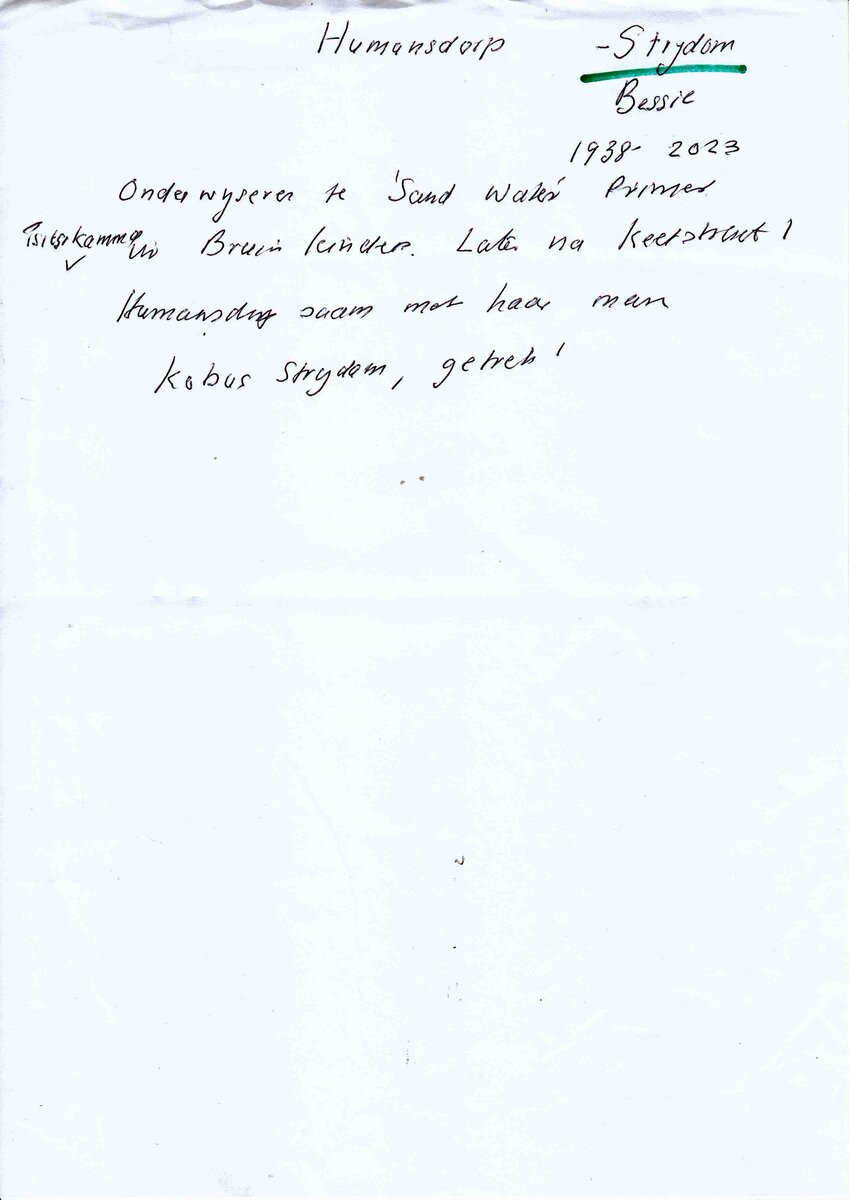 Humansdorp -Strydom
Bessie
1938- 2023
Onderwyseres te 'Sand Water' Primêr
Tsitsikamma vir Bruin kinders. Later na Keetstraat 1
Humansdorp saam met haar man
Kobus Strydom, getrek!